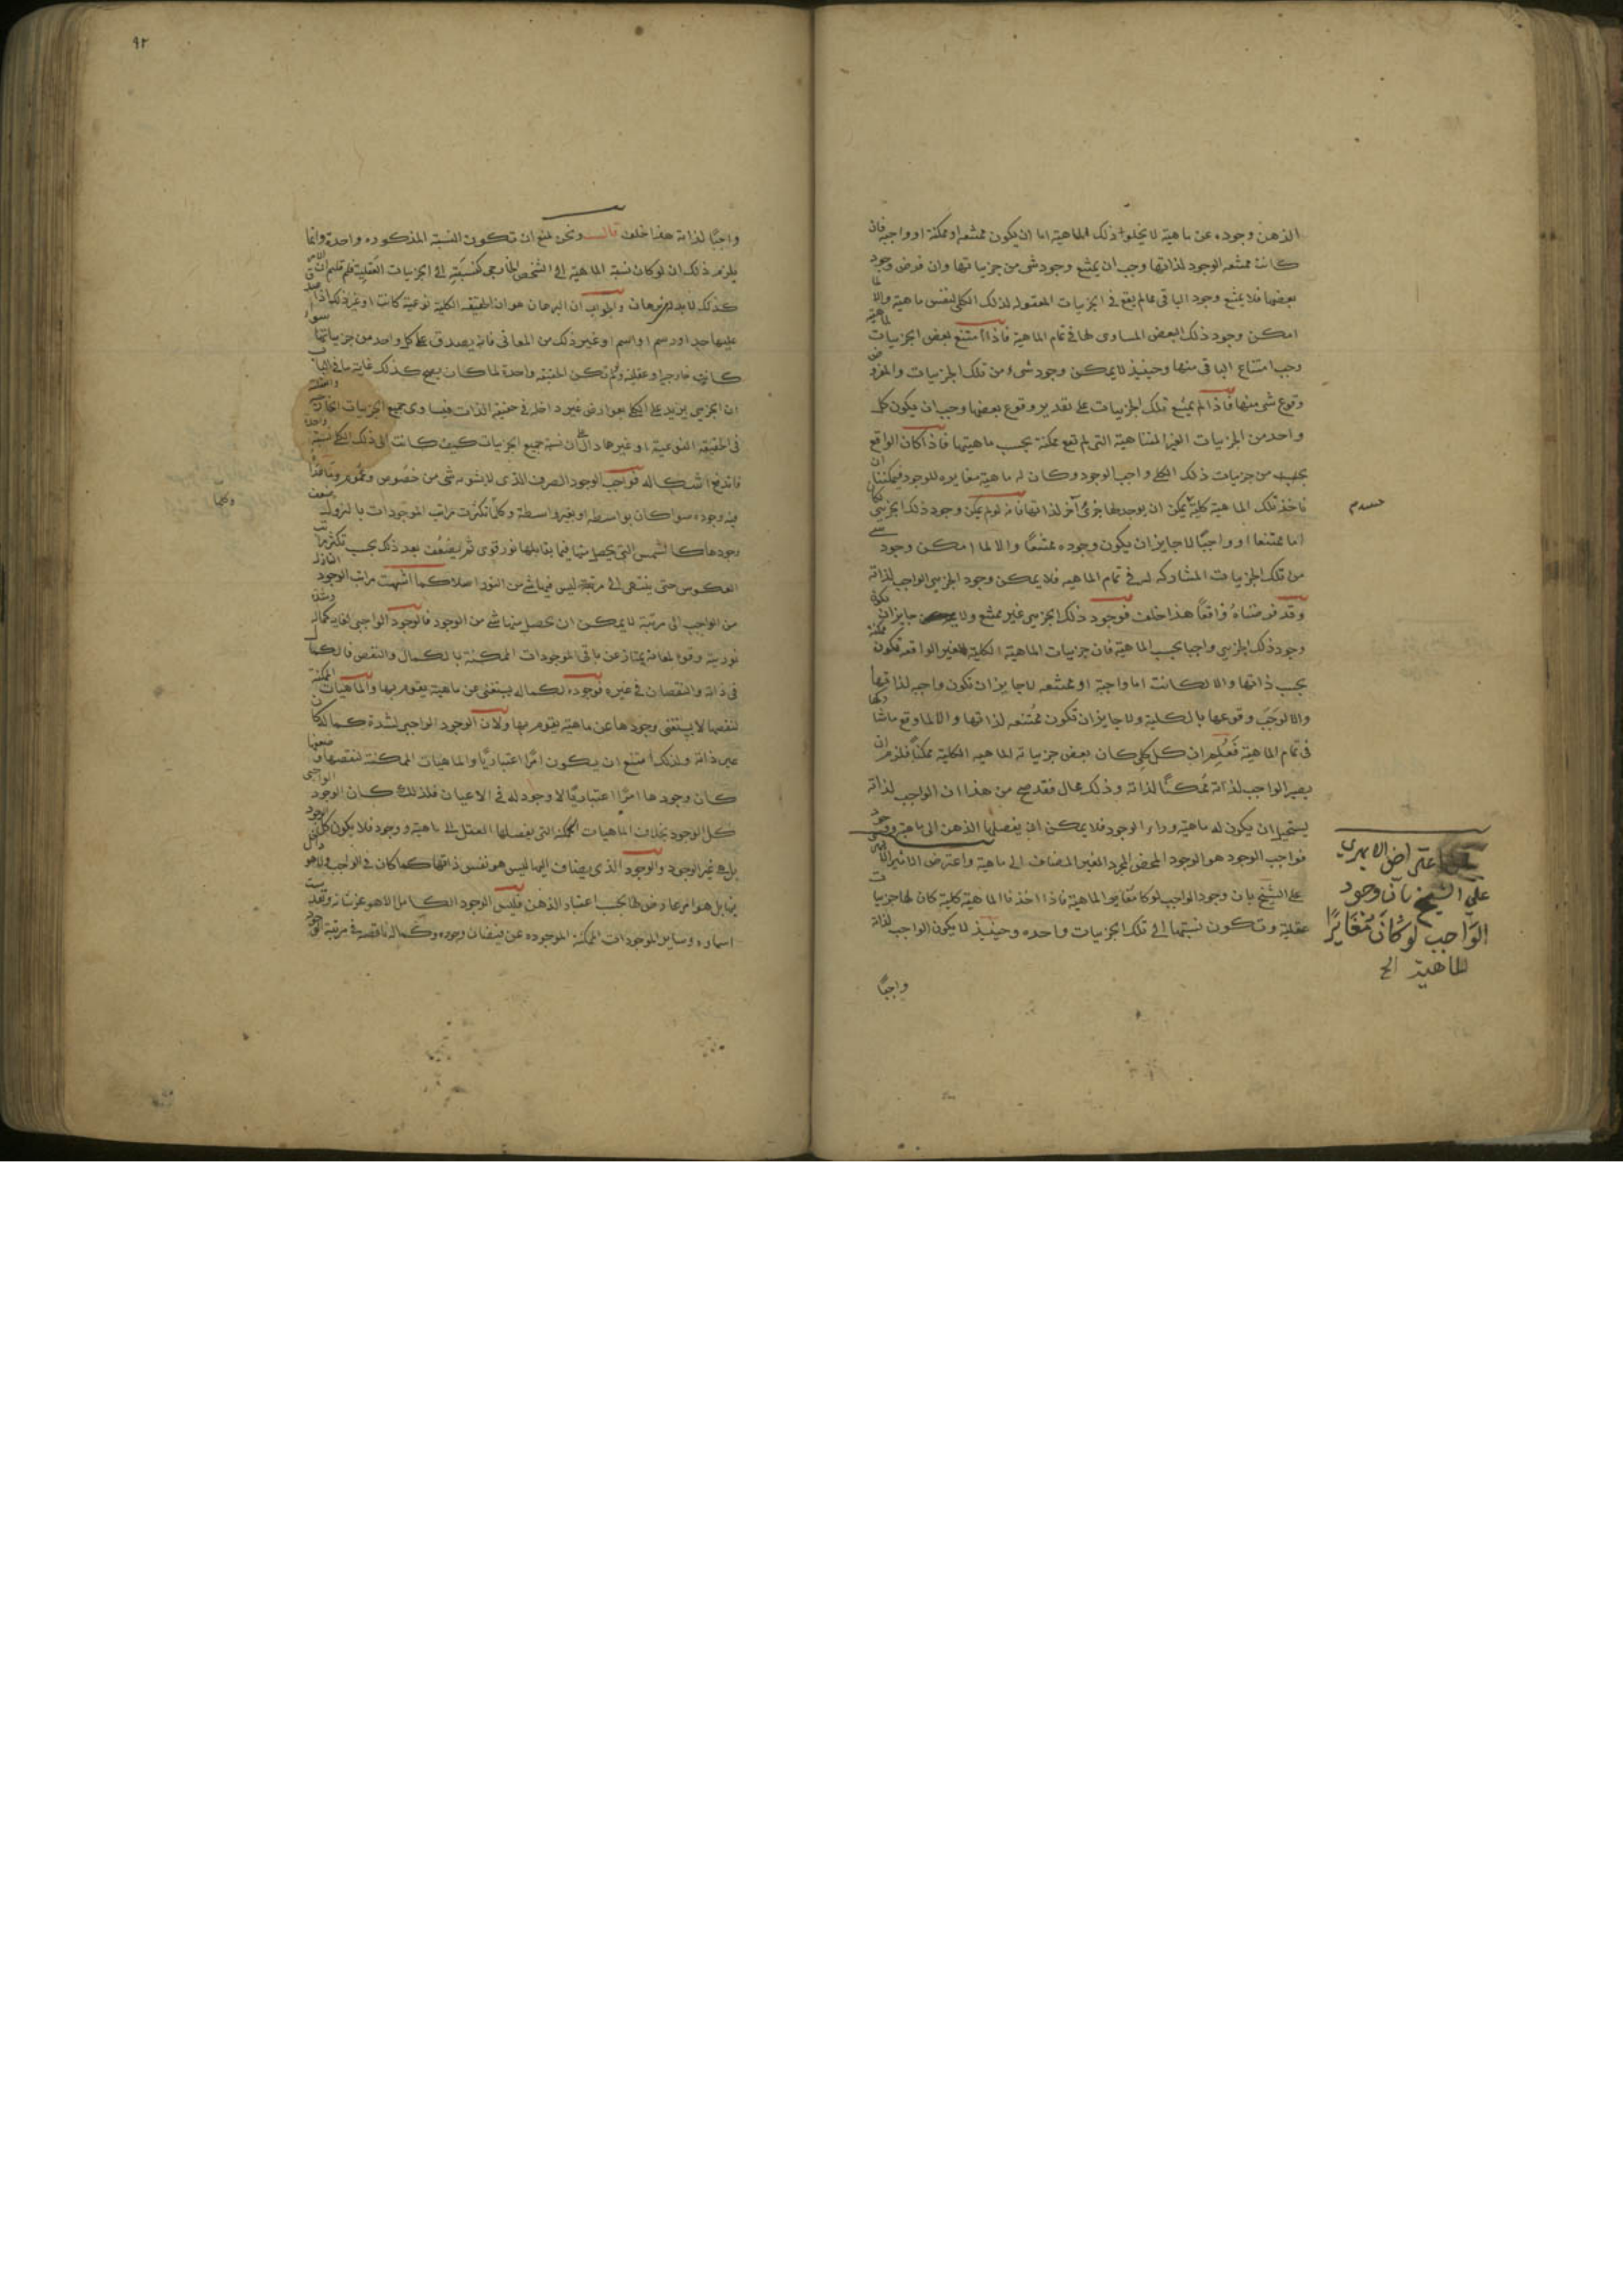 الذهن وجوده عن ماهية لا يخلوا ذلك الماهية اما ان يكون ممتنعه او ممكنة او واجبة فان
كانت ممتنعه الوجود لذاتها وجب ان يمتنع وجود شى من جزياتها وان فرض وجود
بعضها فلا يمتنع وجود الباقى مما لم يقع فى الجزيات المعقوله لذلك الكلى لنفس ماهيته والا لما
امكن وجود ذلك البعض المساوى لها فى تمام الماهية فاذا امتنع بعض الجزييات لماهيته
وجب امتناع الباقى منها وحينيذ لا يمكن وجود شىء من تلك الجزييات والمفروض
وقوع شى منها فاذا لم يمتنع تلك الجزييات على تقدير وقوع بعضها وجب ان يكون كل
واحد من الجزييات الغير المتناهية التى لم تقع ممكنة بحسب ماهيتها فاذا كان الواقع
من جزييات ذلك الكلى واجب الوجود وكان له ماهية مغايره للوجود فيمكننا ان
ناخذ تلك الماهية كلية يمكن ان يوجد لها جزئ آخر لذاتها فانه لو لم يمكن وجود ذلك الجزيى لكان
اما ممتنعا او واجبًا لا جايز ان يكون وجوده ممتنعًا والا لما امكن وجود شى
من تلك الجزييات المشاركه له فى تمام الماهيه فلا يمكن وجود الجزيى الواجب لذاته
وقد فرضناه واقعًا هذا خلف فوجود ذلك الجزيى غير ممتنع ولا جايز ان يكون
وجود ذلك الجزيى واجبا بحسب الماهية فان جزييات الماهية الكلية الغير الواقعه تكون ممكنة
بحسب ذاتها والا لكانت اما واجبة او ممتنعه لا جايز ان تكون واجبه لذاتها
والا لوجب وقوعها بالكلية ولا جايز ان تكون ممتنعه لذاتها والا لما وقع ما شاركها
فى تمام الماهية فعلم ان كل كلى كان بعض جزياته الماهيه الكلية ممكنًا فلزم ان
يصير الواجب لذاته ممكنًا لذاته وذلك محال فقد صح من هذا ان الواجب لذاته
يستحيل ان يكون له ماهية وراء الوجود فلا يمكن ان يفصلها الذهن الى ماهية ووجود
فواجب الوجود هو الوجود المحض المجرد الغير المضاف الى ماهية واعترض الاثير الابهرى
على الشيخ بان وجود الواجب لو كان مغايرا لماهية فاذا اخذنا الماهية كلية كان لها جزييات
عقلية وتكون نسبتها الى تلك الجزييات واحده وحينيذ لا يكون الواجب لذاته
واجبًا
اعتراض الابهرى
على الشيخ بان وجود
الواجب لو كان مغايرًا
للماهية الخ
٩٢
واجبًا لذاته هذا خلف قال ونحن نمنع ان تكون النسبة المذكوره واحدة وانما
يلزم ذلك ان لو كان نسبة الماهية الى الشخص الخارجى كنسبته الى الجزييات العقلية فلم قلتم ان الامر
كذلك لا بد له من برهان والجواب ان البرهان هو ان الحقيقه الكلية نوعية كانت او غير ذلك اذا صدق
عليها حد او رسم او اسم او غير ذلك من المعانى فانه يصدق على كل واحد من جزيياتها سواء
كانت خارجية او عقلية ولو لم تكن الحقيقه واحدة لما كان يصح كذلك غاية ما فى الباب
ان الجزيى يزيد على الكلى بعوارض غير داخله فى حقيقه الذات فيساوى جميع الجزييات الخارجية والعقلية
فى الحقيقه النوعية او غيرها دال على ان نسبة جميع الجزييات كيف كانت الى ذلك الكلى نسبة واحدة
فاندفع اشكاله فواجب الوجود الصرف الذى لا يشوبه شى من خصوص وعموم وما عداه
فيه وجوده سوا كان بواسطه او بغير واسطة وكلما تكثرت مراتب الموجودات بالنزول يضعف
وجودها كالشمس التى يحصل منها فيما يقابلها نور قوى ثم يضعف بعد ذلك بحسب تكثر مراتب
العكوس حتى ينتهى الى مرتبة ليس فيها شى من النور اصلا كما انتهت مراتب الوجود النازلة
من الواجب الى مرتبة لا يمكن ان يحصل منها شى من الوجود فالوجود الواجبى لغاية كماله وشدة
نوريته وقوة لمعانه يمتاز عن باقى الموجودات الممكنة بالكمال والنقص فالكمال
فى ذاته والنقصان فى غيره فوجوده لكماله يستغنى عن ماهية يقوم بها والماهيات الممكنة
لنقصها لا يستغنى وجودها عن ماهية يقوم بها ولان الوجود الواجبى لشدة كماله كان
عين ذاته ولذلك امتنع ان يكون امرًا اعتباريًا والماهيات الممكنة لنقصها وضعفها
كان وجودها امرًا اعتباريًا لا وجود له فى الاعيان فلذلك كان الوجود الواجبى
كل الوجود بخلاف الماهيات الممكنه التى يفصلها العقل الى ماهية ووجود فلا يكون كل الوجود
بل هى غير الوجود والوجود الذى يضاف اليها ليس هو نفس ذاتها كما كان فى الواجب ولا هو داخل
فيها بل هو امر عارض لها بحسب اعتبار الذهن فليس الوجود الكامل الا هو عز شانه وتقدست
اسماوه وساير الموجودات الممكنة الموجوده عن فيضان وجوده وكماله ناقصه فى مرتبة الوجود